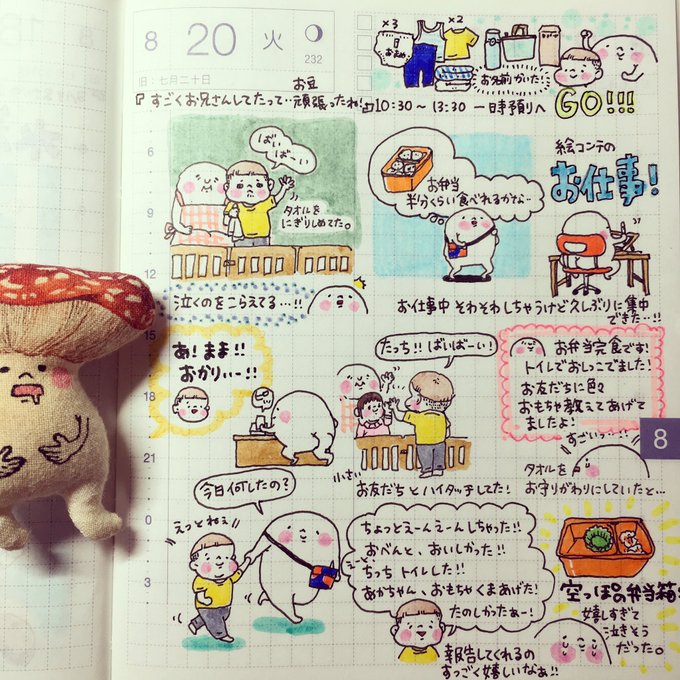 8 20 火
232
旧:七月二十日
×3
×2
おむつ
お名前かいた!
『すごくお兄さんしてたって‥お豆頑張ったね!
10:30〜13:30 一時預りへ
GO!!!
6
9
12
15
18
21
0
3
ばいばーい
タオルを
にぎりしめてた。
泣くのをこらえてる…!!
お弁当
半分くらい食べれるかな‥
絵コンテの
お仕事!
お仕事中 そわそわしちゃうけど久しぶりに集中
できた…!!
あ!まま!!
おかりぃー!!
たっち!!ばいばーい!
小さい
お友だちとハイタッチしてた!
お弁当完食です!
トイレでおしっこでました!
お友だちに色々
おもちゃ教えてあげて
ましたよ!
すごいっ…!
8
タオルを
お守りがわりにしていたと…
今日何したの?
えっとねぇ
ちょっとえーんえーんしちゃった!!
おべんと、おいしかった!!
えーと
ちっち トイレした!!
あかちゃん、おもちゃくまあげた!
たのしかったぁー!
報告してくれるの
すっごく嬉しいなぁ!!
空っぽの弁当箱!
嬉しすぎて
泣きそう
だった。